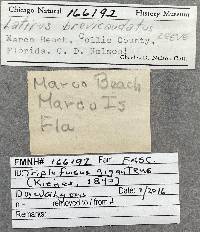 Chicago Natural 166192 History Museum
Latirus brevicaudatus
REEVE
Marco Beach, Collic County,
Florida. C. D. Nelson!
Marco Beach
Marco Is
Fla
FMNH# 166192 For FASC.
(Kiener, 1840)
Date: 9/2016
n = removed to / from #
Remarks: